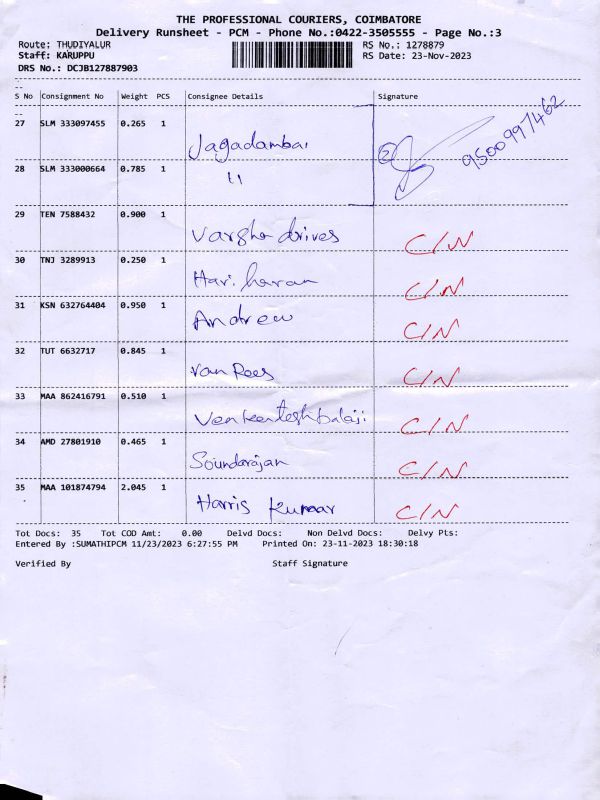 THE PROFESSIONAL COURIERS, COIMBATORE
Delivery Runsheet - PCM - Phone No.:0422-3505555 - Page No.:3
Route: THUDIYALUR RS No.: 1278879
Staff: KARUPPU RS Date: 23-Nov-2023
DRS No.: DCJB127887903
S No Consignment No Weight PCS Consignee Details Signature
27 SLM 333097455 0.265 1 Jagadambai 2 9500997462
28 SLM 333000664 0.785 1 11
29 TEN 7588432 0.900 1 Varsha drives C/N
30 TNJ 3289913 0.250 1 Hari haran C/N
31 KSN 632764404 0.950 1 Andrew C/N
32 TUT 6632717 0.845 1 Van Rees C/N
33 MAA 862416791 0.510 1 Venkateshbalaji C/N
34 AMD 27801910 0.465 1 Soundarajan C/N
35 MAA 101874794 2.045 1 Harris Kumar C/N
Tot Docs: 35 Tot COD Amt: 0.00 Delvd Docs: Non Delvd Docs: Delvy Pts:
Entered By :SUMATHIPCM 11/23/2023 6:27:55 PM Printed On: 23-11-2023 18:30:18
Verified By Staff Signature